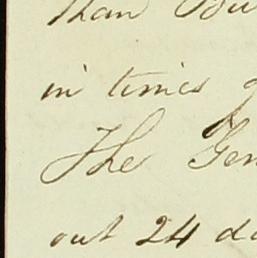 than
in times
The Gen
out 24 da